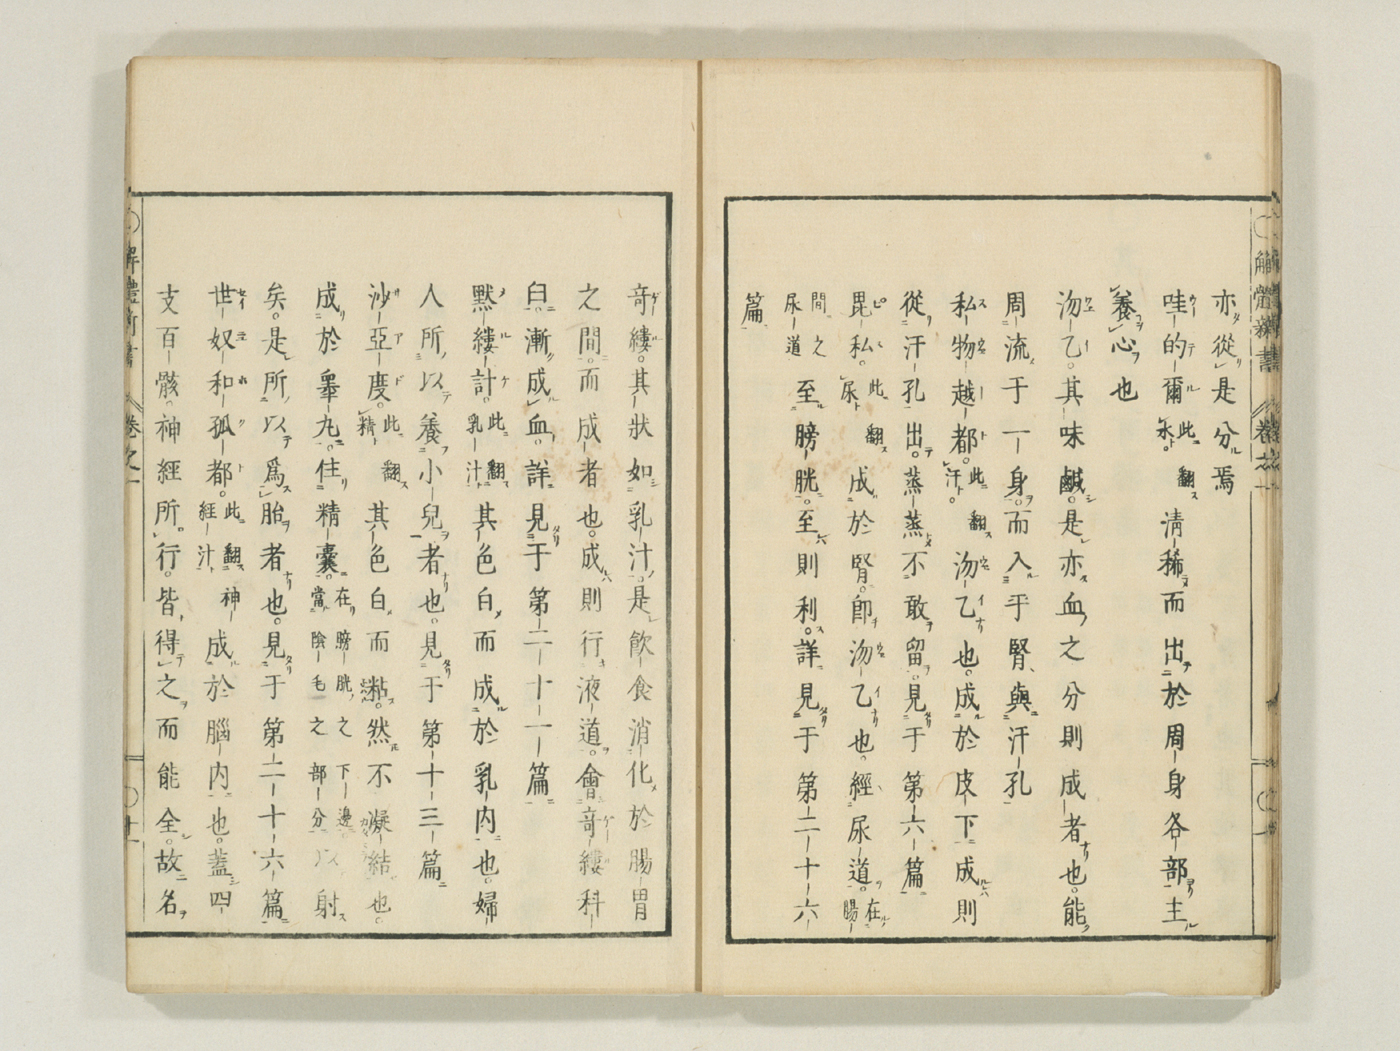 亦從是分焉
哇的爾此翻水清稀而出於周身各部主
養心也
沕乙其味鹹是亦血之分則成者也能
周流于一身而入乎腎與汗孔
私物越都此翻汗沕乙也成於皮下成則
從汗孔出蒸蒸不敢留見于第六篇
毘私此翻尿成於腎即沕乙也經尿道在腸
間之尿道至膀胱至則利詳見于第二十六
篇
奇縷其狀如乳汁是飲食消化於腸胃
之間而成者也成則行液道會奇縷科
臼漸成血詳見于第二十一篇
默縷計此翻乳汁其色白而成於乳内也婦
人所以養小兒者也見于第十三篇
沙亞度此翻精其色白而粘然不凝結也
成於睾丸住精囊在膀胱之下邊當陰毛之部分以射
矣是所以為胎者也見于第二十六篇
世奴和孤都此翻神經汁成於腦内也蓋四
支百骸神經所行皆得之而能全故名
解體新書
卷之一